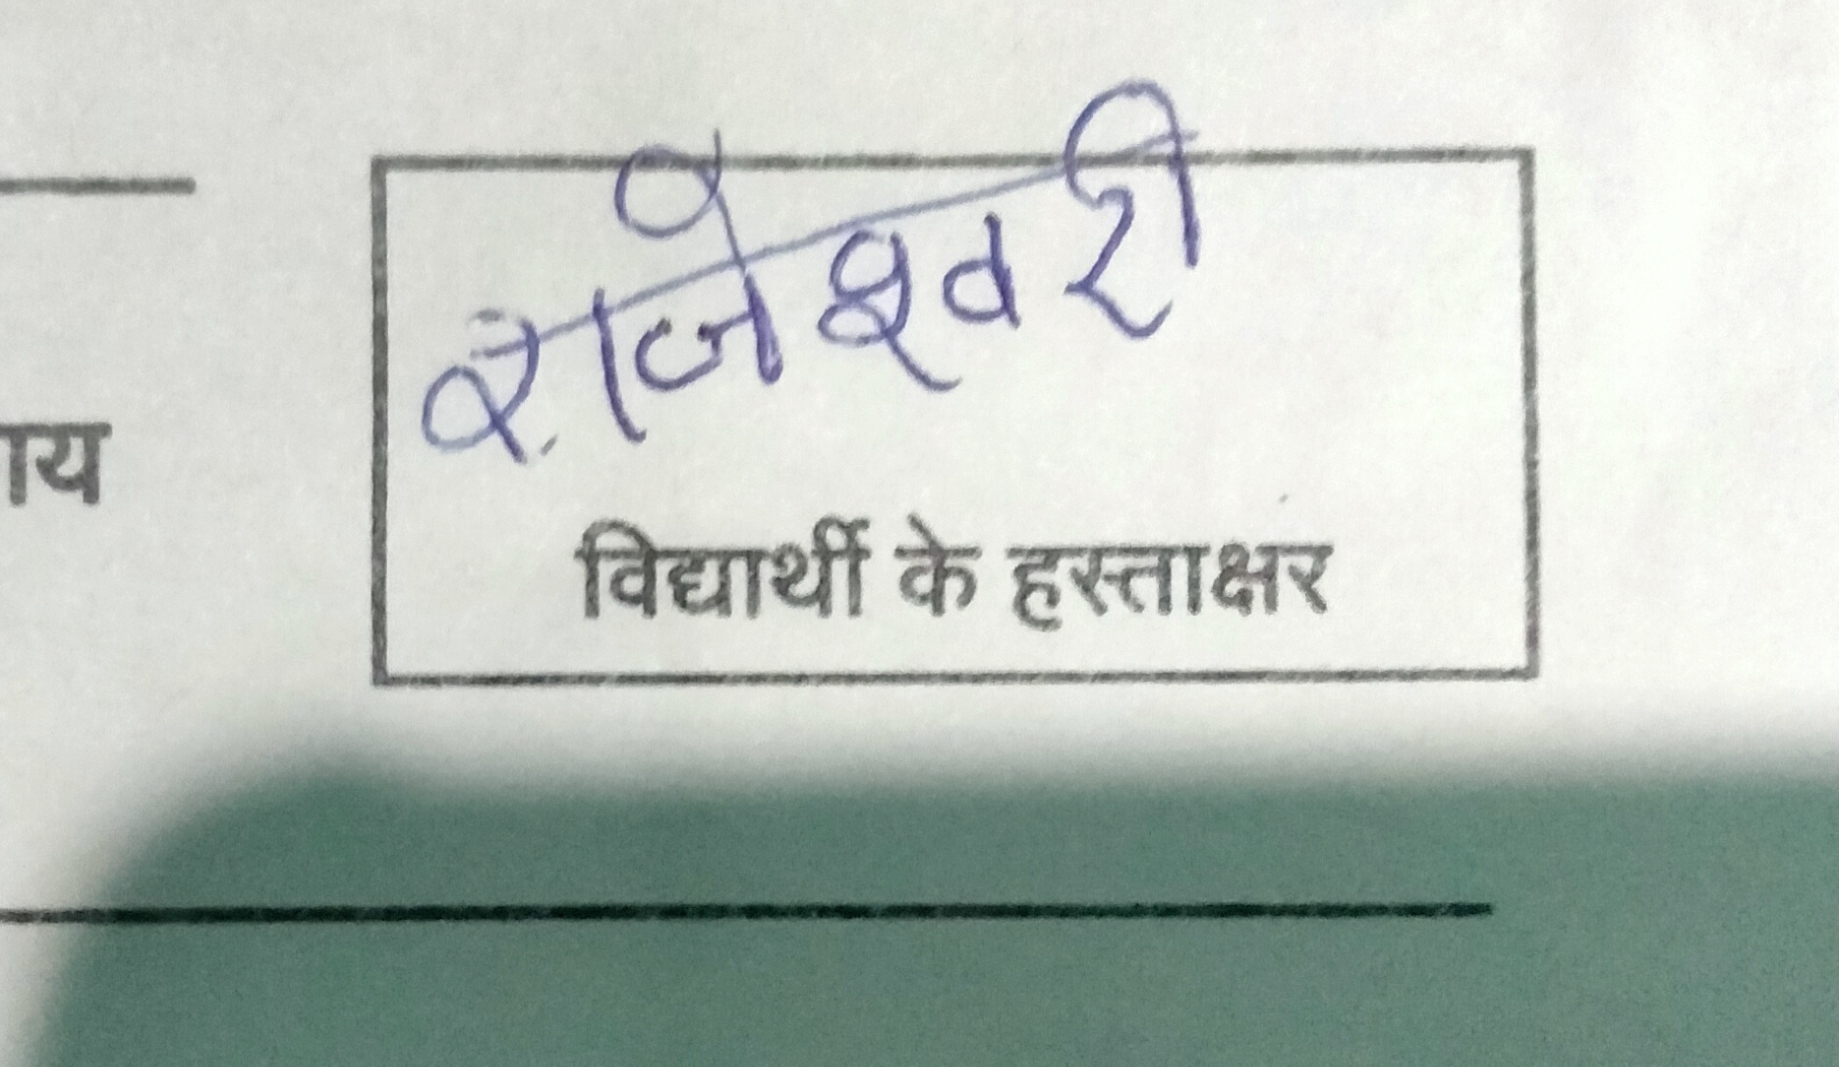 राजेश्वरी
ाय
विद्यार्थी के हस्ताक्षर